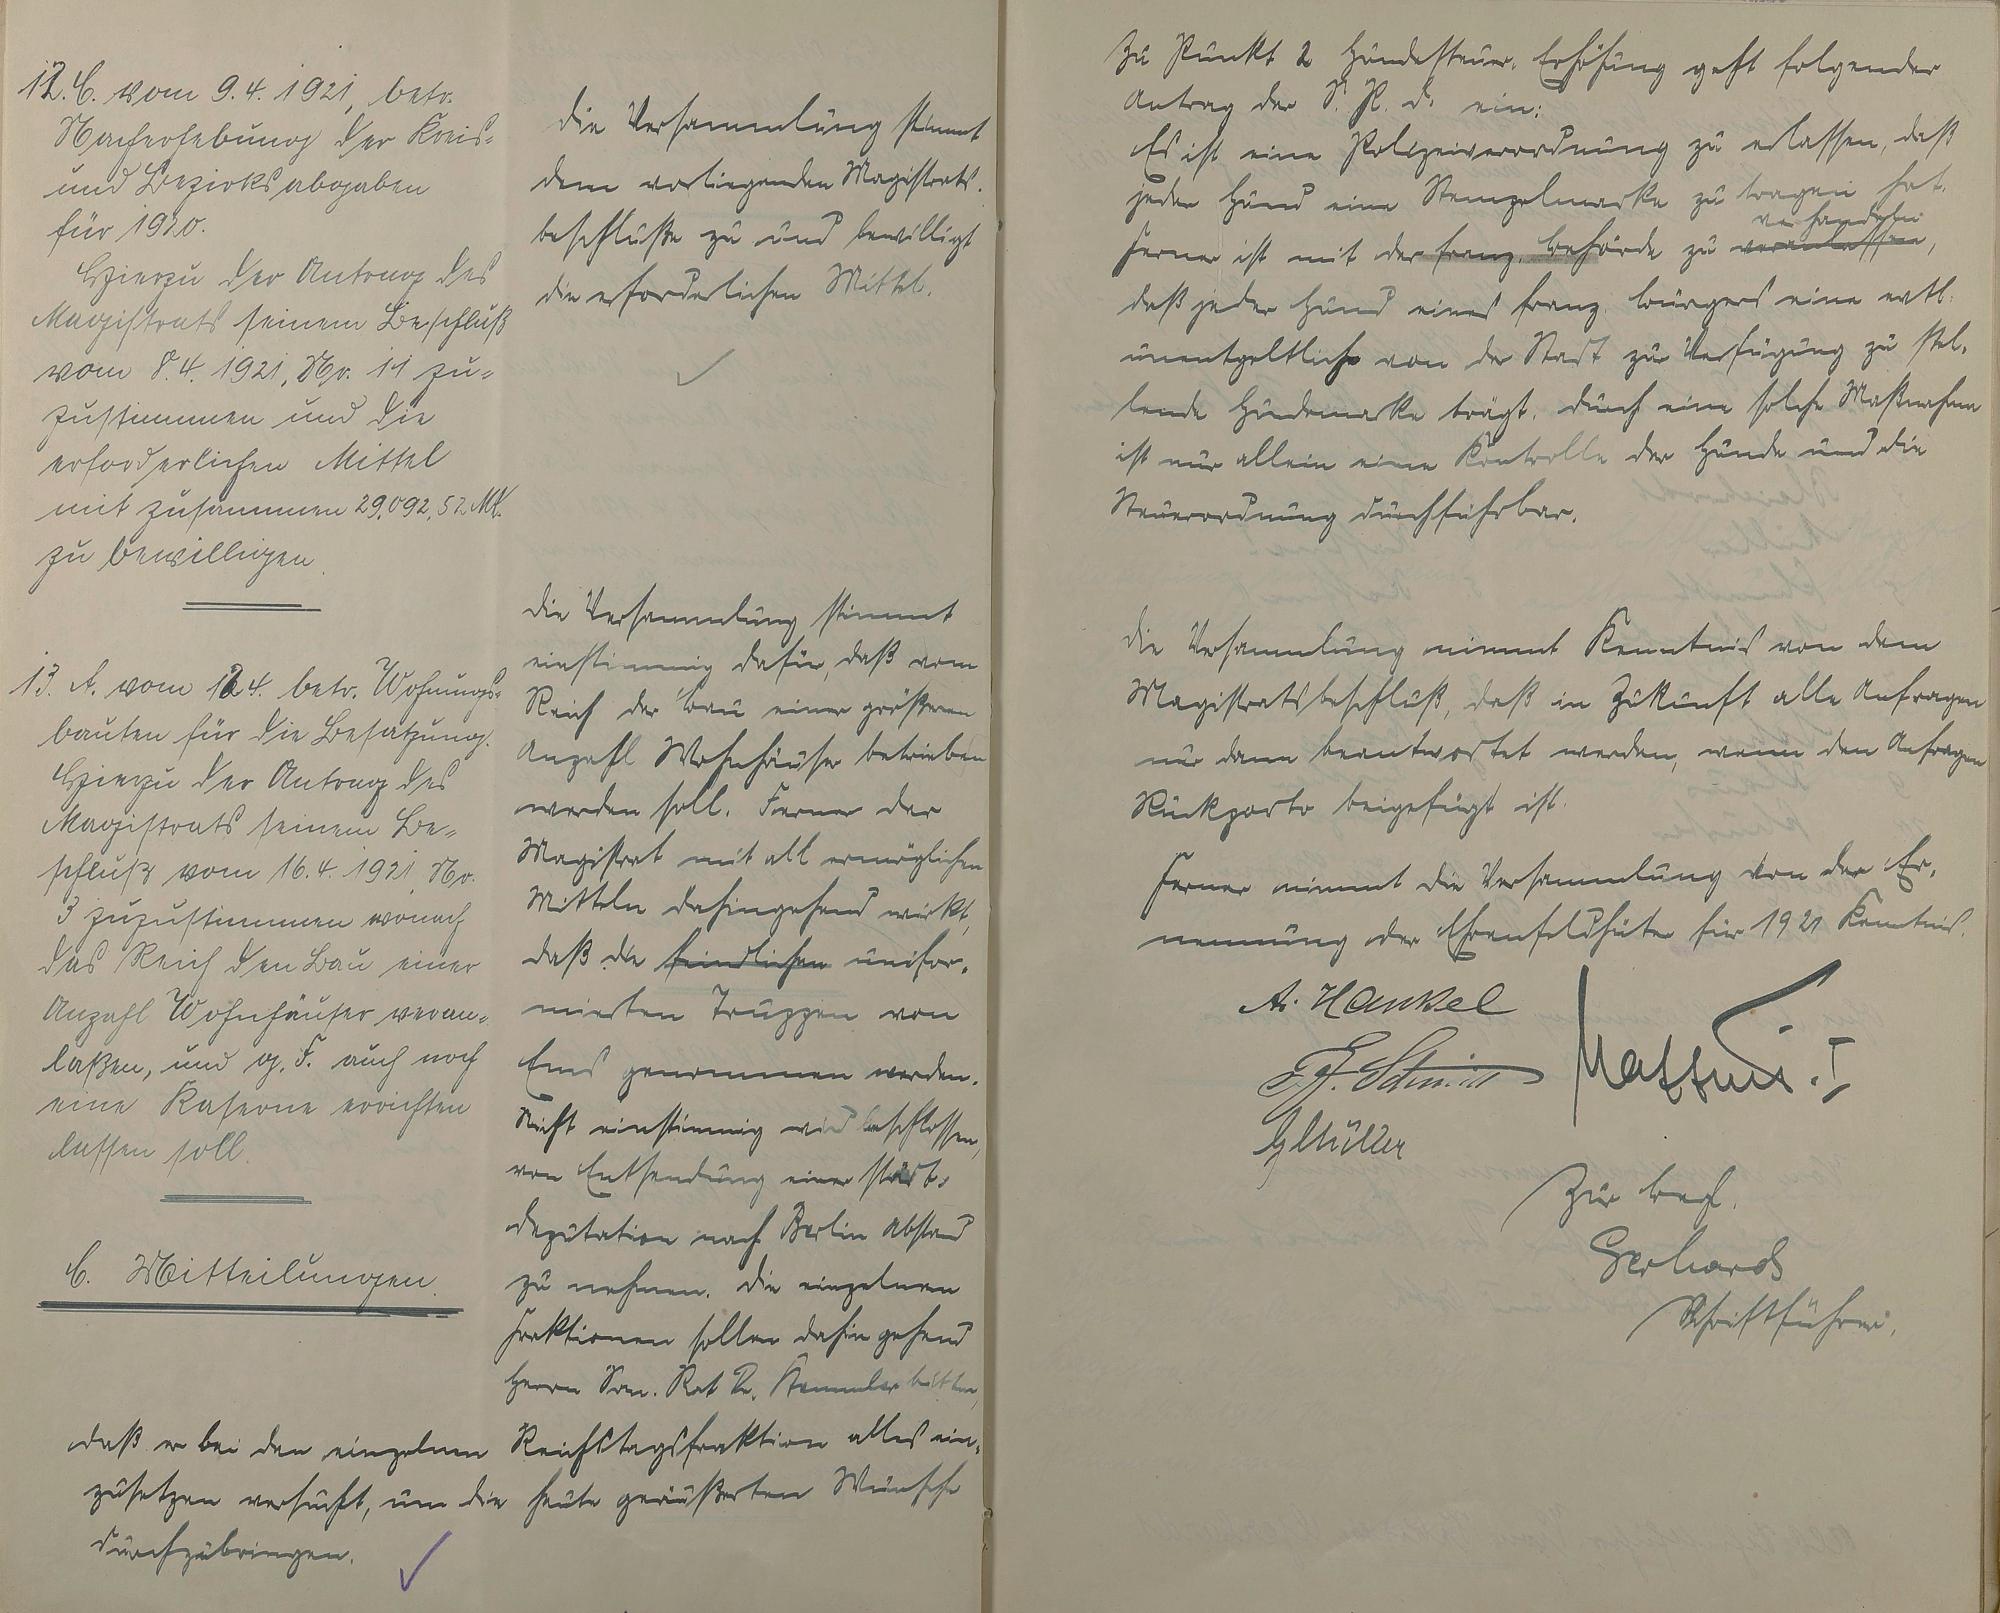 12. C. vom 9.4.1921, betr.
Nacherhebung der Kreis-
und Bezirksabgaben
für 1920.
Hierzu der Antrag des
Magistrats seinem Beschluß
vom 8.4.1921, Nr. 11 zu-
zustimmen und die
erforderlichen Mittel
mit zusammen 29.092,52 Mk.
zu bewilligen.
Die Versammlung stimmt
dem vorliegenden Magistrats-
beschluße zu und bewilligt
die erforderlichen Mittel.
13. A. vom 12.4. betr. Wohnungs-
bauten für die Besatzung.
Hierzu der Antrag des
Magistrats seinem Be-
schluß vom 16.4.1921, Nr.
3 zuzustimmen wonach
das Reich den Bau einer
Anzahl Wohnhäuser veran-
laßen, und g. F. auch noch
eine Kaserne errichten
lassen soll.
Die Versammlung stimmt
einstimmig dafür, daß vom
Reich der Bau einer größeren
Anzahl Wohnhäuser betrieben
werden soll. Ferner der
Magistrat mit all ermöglichen
Mitteln dahingehend wirkt,
daß die feindlichen unifor-
mierten Truppen von
Ems genommen werden.
Nicht einstimmig wird beschlossen,
von Entsendung einer städt.
Deputation nach Berlin Abstand
zu nehmen. Die einzelnen
Fraktionen sollen dahin gehend
Herrn San. Rat Dr. Stemmler bitten,
daß er bei den einzelnen Reichstagsfraktion alles ein-
zusetzen versucht, um die heute geäußerten Wünsche
durchzubringen.
C. Mitteilungen.
Zu Punkt 2 Hundesteuer-Erhöhung geht folgender
Antrag der S. P. D. ein:
Es ist eine Polizeiverordnung zu erlassen, daß
jeder Hund eine Stempelmarke zu tragen hat.
verhandeln
Ferner ist mit der franz. Behörde zu veranlassen,
daß jeder Hund eines franz. Bürgers eine evtl.
unentgeltlich von der Stadt zur Verfügung zu stel-
lende Hundemarke trägt. Durch eine solche Maßnahme
ist nur allein eine Kontrolle der Hunde und die
Steuerordnung durchführbar.
Die Versammlung nimmt Kenntnis von dem
Magistratsbeschluß, daß in Zukunft alle Anfragen
nur dann beantwortet werden, wenn den Anfragen
Rückporto beigefügt ist.
Ferner nimmt die Versammlung von der Er-
nennung der Ehrenfeldhüter für 1921 Kenntnis.
A. Hankel
Schmitt
G Müller
Zur Begl.
Gerhards
Schriftführer.